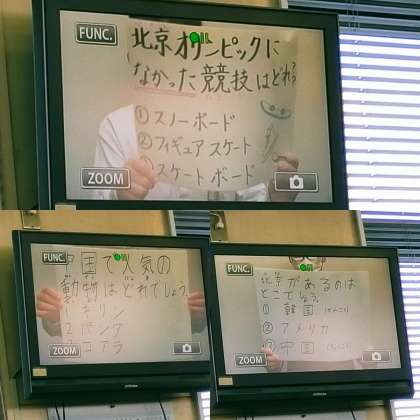 FUNC.
北京オリンピックに
なかった競技はどれ?
①スノーボード
②フィギュアスケート
スケートボード
ZOOM
FUNC.
国で人気の
動物はどれでしょう。
1 キリン
2 パンダ
コアラ
ZOOM
FUNC.
北京があるのは
どこでしょう。
① 韓国
② アメリカ
③ 中国
ZOOM